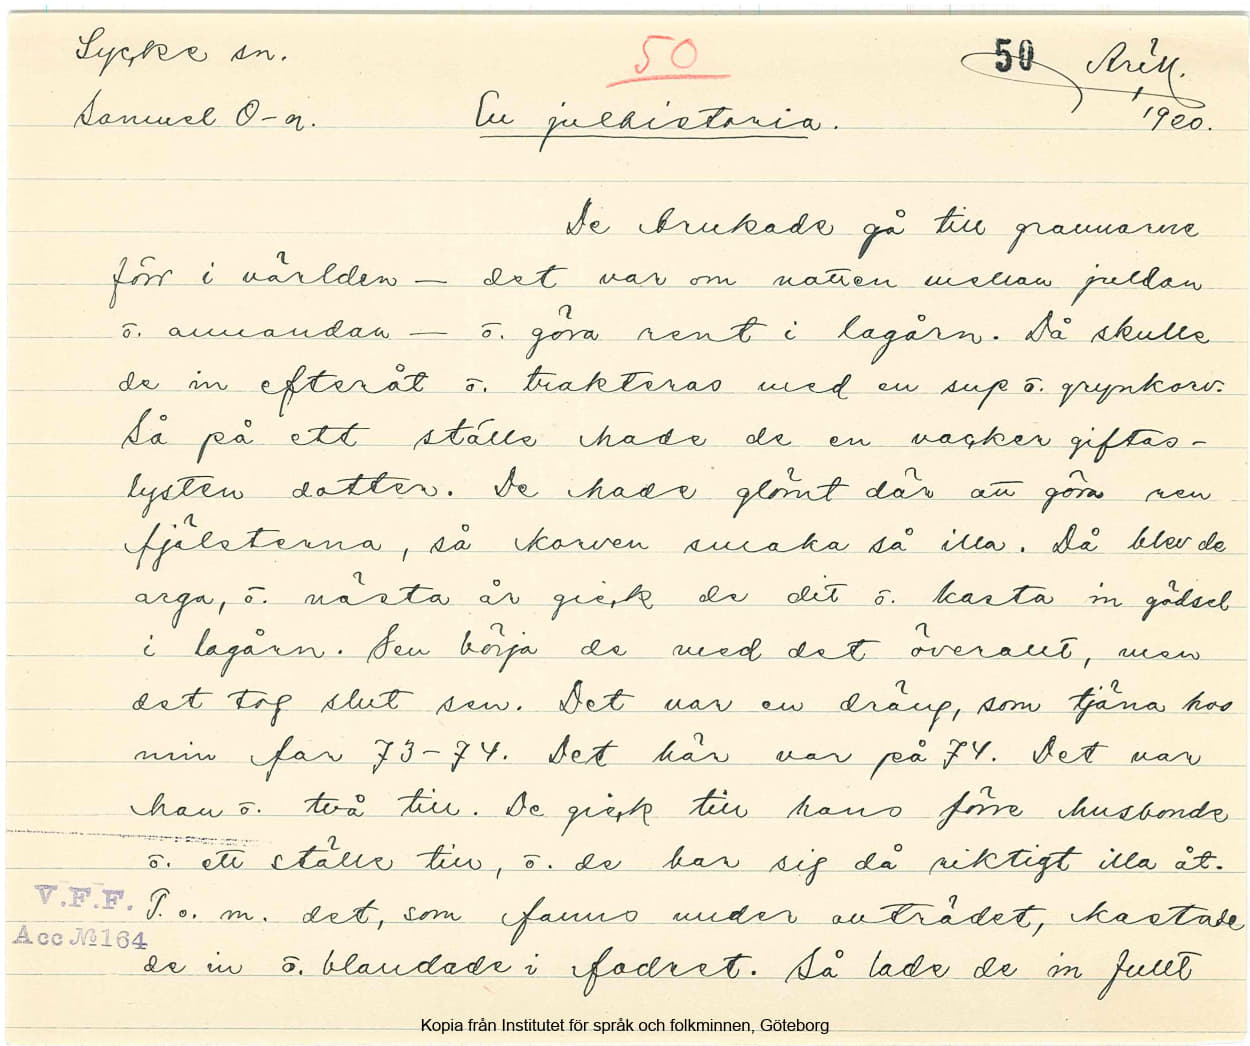 Lycke sn.
50
50 Arill.
Samuel O-n.
En julhistoria.
1920.
De brukade gå till grannarne
förr i världen — det var om natten mellan juldan
o. annandan — o. göra rent i lagårn. Då skulle
de in efteråt o. trakteras med en sup o. grynkorv.
Så på ett ställe hade de en vacker giftas-
lysten dotter. De hade glömt där att göra ren
fjälsterna, så korven smaka så illa. Då blev de
arga, o. nästa år gick de dit o. kasta in gödsel
i lagårn. Sen börja de med det överallt, men
det tog slut sen. Det var en dräng, som tjäna hos
min far 73-74. Det här var på 74. Det var
han o. två till. De gick till hans förre husbonde
o. ett ställe till, o. de bar sig då riktigt illa åt.
V.F.F.
T. o. m. det, som fanns under avträdet, kastade
Acc No 164
de in o. blandade i fodret. Så lade de in fullt
Kopia från Institutet för språk och folkminnen, Göteborg